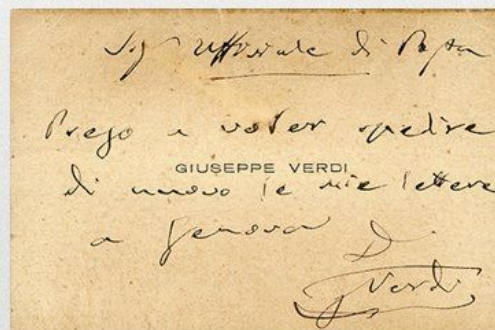 Sigr Uffiziale di Posta
Prego a voler spedire
GIUSEPPE VERDI
di nuovo le mie lettere
a Genova
G Verdi